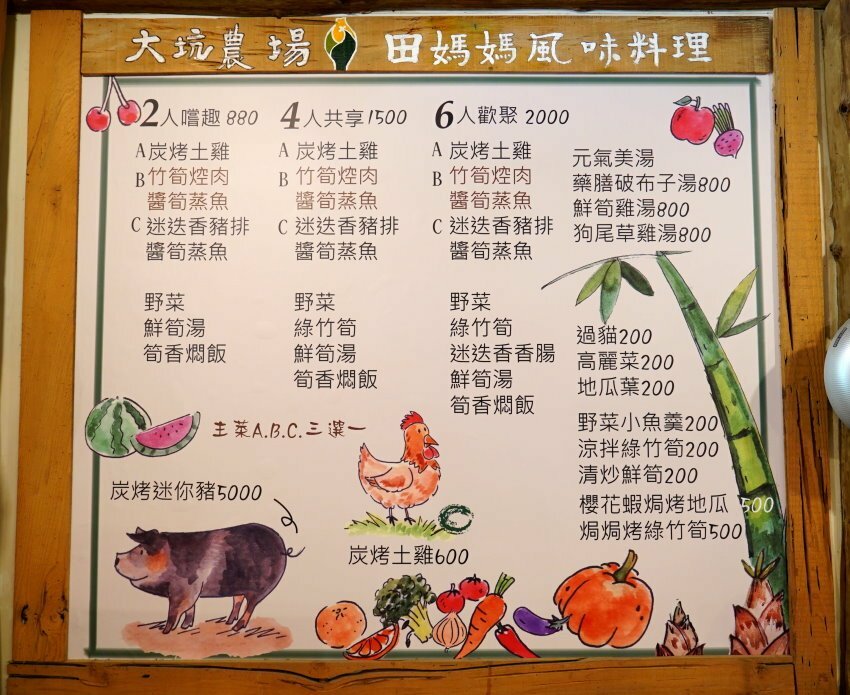 大坑農場 田媽媽風味料理
2人嚐趣 880
A炭烤土雞
B竹筍焢肉
醬筍蒸魚
C迷迭香豬排
醬筍蒸魚
野菜
鮮筍湯
筍香燜飯
4人共享1500
A 炭烤土雞
B 竹筍焢肉
醬筍蒸魚
C 迷迭香豬排
醬筍蒸魚
野菜
綠竹筍
鮮筍湯
筍香燜飯
6人歡聚 2000
A 炭烤土雞
B 竹筍焢肉
醬筍蒸魚
C 迷迭香豬排
醬筍蒸魚
野菜
綠竹筍
迷迭香香腸
鮮筍湯
筍香燜飯
元氣美湯
藥膳破布子湯800
鮮筍雞湯800
狗尾草雞湯800
過貓200
高麗菜200
地瓜葉200
野菜小魚羹200
涼拌綠竹筍200
清炒鮮筍200
櫻花蝦焗烤地瓜 500
焗焗烤綠竹筍500
主菜A.B.C.三選一
炭烤迷你豬5000
炭烤土雞600